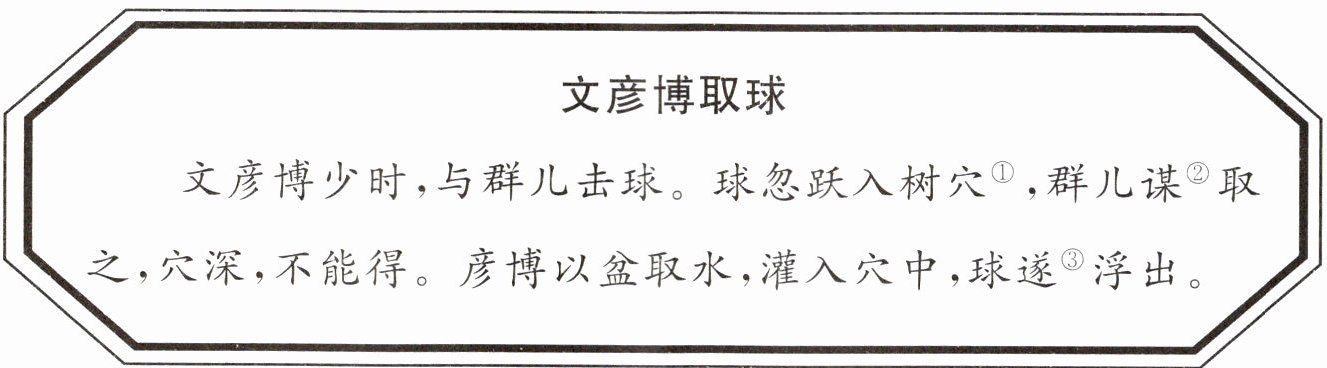 文彦博取球
文彦博少时,与群儿击球。球忽跃入树穴①,群儿谋②取
之,穴深,不能得。彦博以盆取水,灌入穴中,球遂③浮出。